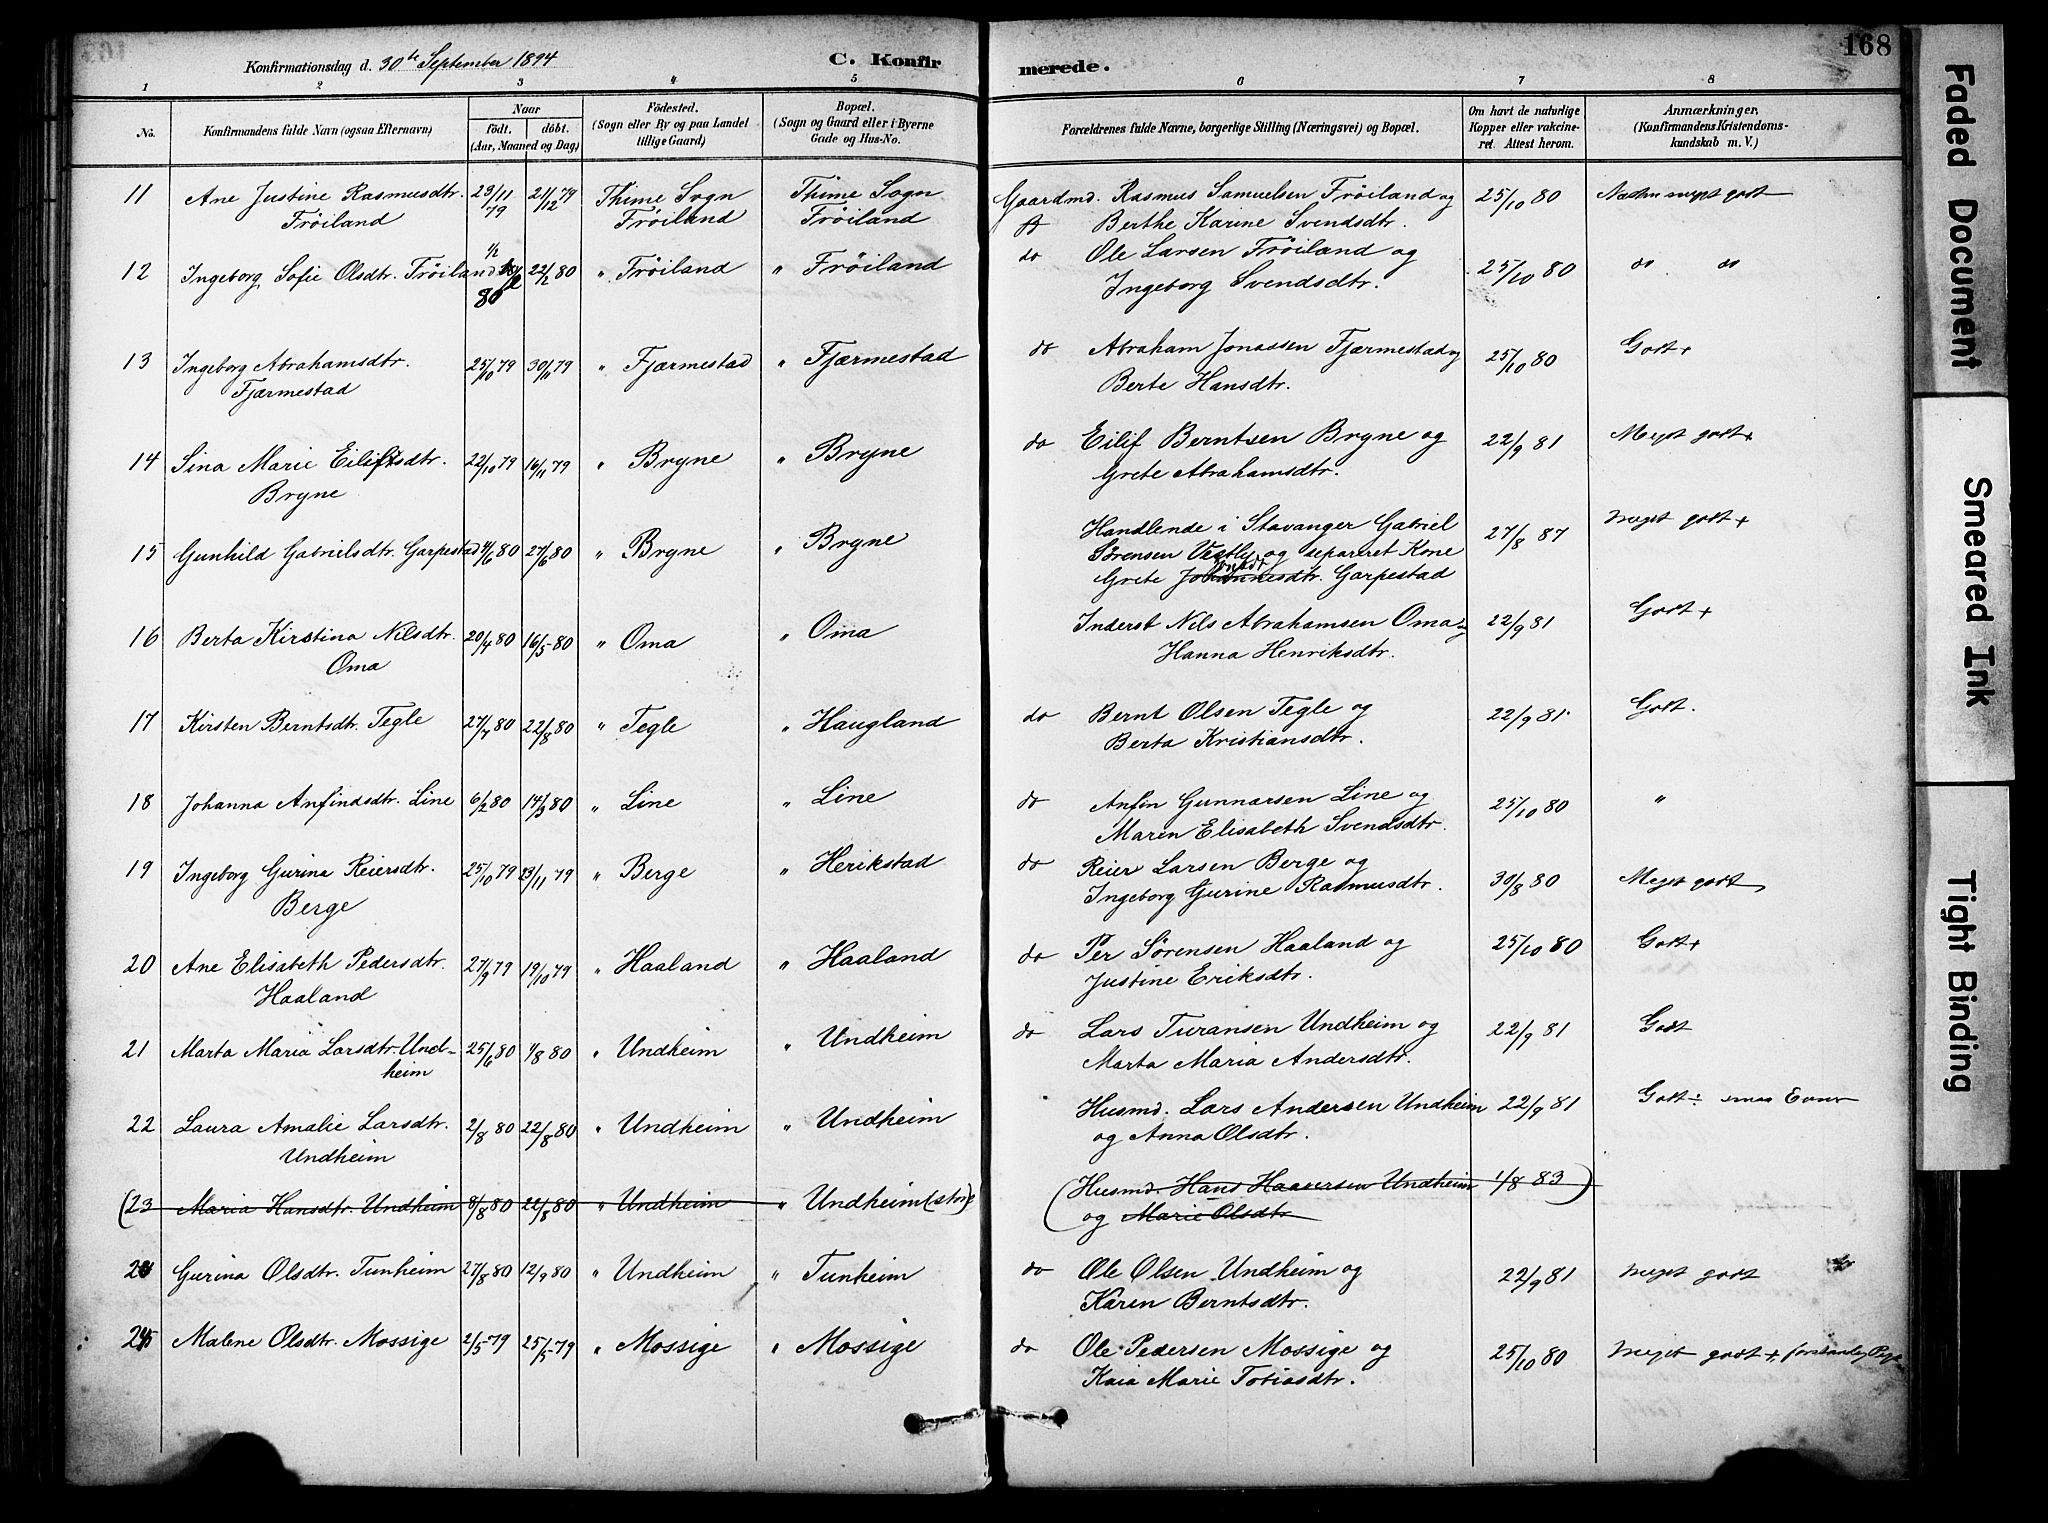 168
Konfirmationsdag d. 30te September 1894
C. Konfirmerede.
1 2 3 4 5 6 7 8
No.
Konfirmandens fulde Navn (ogsaa Efternavn)
Naar
födt. döbt.
(Aar, Maaned og Dag)
Födested.
(Sogn eller By og paa Landet
tillige Gaard)
Bopæl.
(Sogn og Gaard eller i Byerne
Gade og Hus-No.
Forældrenes fulde Navne, borgerlige Stilling (Næringsvei) og Bopæl.
Om havt de naturlige
Kopper eller vakcine-
ret. Attest herom.
Anmærkninger,
(Konfirmandens Kristendoms-
kundskab m. V.)
11 Ane Justine Rasmusdtr. 23/11 79 21/12 79 Thime Sogn Thime Sogn Gaardmd. Rasmus Samuelsen Fröiland og 25/10 80 Næsten meget godt
Fröiland Fröiland Fröiland Berthe Karine Svendsdtr.
12 Ingeborg Sofie Olsdtr. Fröiland 1/2 80 22/2 80 " Fröiland " Fröiland do Ole Larsen Fröiland og 25/10 80 do do
Ingeborg Svendsdtr.
13 Ingeborg Abrahamsdtr. 25/10 79 30/11 79 " Fjærmestad " Fjærmestad do Abraham Jonassen Fjærmestad og 25/10 80 Godt +
Fjærmestad Berte Hansdtr.
14 Sina Marie Eilifsdtr. 22/10 79 16/11 79 " Bryne " Bryne do Eilif Berntsen Bryne og 22/9 81 Meget godt +
Bryne Grete Abrahamsdtr.
15 Gunhild Gabrielsdtr. Garpestad 4/6 80 27/6 80 " Bryne " Bryne Handlende i Stavanger Gabriel 27/8 87 Meget godt +
Sörensen Vestly og separeret Kone
Grete Johannesdtr. Garpestad
16 Berta Kirstina Nilsdtr. 20/4 80 16/5 80 " Oma " Oma Inderst Nils Abrahamsen Oma og 22/9 81 Godt +
Oma Hanna Henriksdtr.
17 Kirsten Berntsdtr. Tegle 27/7 80 22/8 80 " Tegle " Haugland do Bernt Olsen Tegle og 22/9 81 Godt.
Berta Kristiansdtr.
18 Johanna Anfindsdtr. Line 6/2 80 14/3 80 " Line " Line do Anfin Gunnarsen Line og 25/10 80 "
Maren Elisabeth Svendsdtr.
19 Ingeborg Gurina Reiersdtr. 25/10 79 23/11 79 " Berge " Herikstad do Reier Larsen Berge og 30/8 80 Meget godt
Berge Ingeborg Gurine Rasmusdtr.
20 Ane Elisabeth Pedersdtr. 27/9 79 19/10 79 " Haaland " Haaland do Per Sörensen Haaland og 25/10 80 Godt +
Haaland Justine Eriksdtr.
21 Marta Maria Larsdtr. Und- 25/6 80 1/8 80 " Undheim " Undheim do Lars Turansen Undheim og 22/9 81 Godt
heim Marta Maria Andersdtr.
22 Laura Amalie Larsdtr. 2/8 80 22/8 80 " Undheim " Undheim Husmd. Lars Andersen Undheim 22/9 81 Godt ÷ smaa Evner
Undheim og Anna Olsdtr.
(23 Maria Hansdtr. Undheim 8/8 80 22/8 80 " Undheim " Undheim (store) (Husmd. Hans Haaversen Undheim 1/8 83)
og Marie Olsdtr
24 Gurina Olsdtr. Tunheim 27/8 80 12/9 80 " Undheim " Tunheim do Ole Olsen Undheim og 22/9 81 Meget godt
Karen Berntsdtr.
25 Malene Olsdtr. Mossige 2/5 79 25/5 79 " Mossige " Mossige do Ole Pedersen Mossige og 25/10 80 Meget godt +, forstandig Pige
Kaia Marie Tobiasdtr.
Faded Document
Smeared Ink
Tight Binding